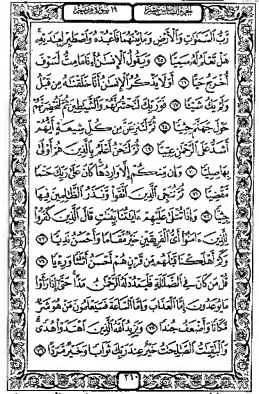 ١٩ سورة مريم الجزء السادس عشر
رَّبُّ ٱلسَّمَٰوَٰتِ وَٱلْأَرْضِ وَمَا بَيْنَهُمَا فَٱعْبُدْهُ وَٱصْطَبِرْ لِعِبَٰدَتِهِۦ
هَلْ تَعْلَمُ لَهُۥ سَمِيًّا ٦٥ وَيَقُولُ ٱلْإِنسَٰنُ أَءِذَا مَا مِتُّ لَسَوْفَ
أُخْرَجُ حَيًّا ٦٦ أَوَلَا يَذْكُرُ ٱلْإِنسَٰنُ أَنَّا خَلَقْنَٰهُ مِن قَبْلُ
وَلَمْ يَكُ شَيْـًٔا ٦٧ فَوَرَبِّكَ لَنَحْشُرَنَّهُمْ وَٱلشَّيَٰطِينَ ثُمَّ لَنُحْضِرَنَّهُمْ
حَوْلَ جَهَنَّمَ جِثِيًّا ٦٨ ثُمَّ لَنَنزِعَنَّ مِن كُلِّ شِيعَةٍ أَيُّهُمْ
أَشَدُّ عَلَى ٱلرَّحْمَٰنِ عِتِيًّا ٦٩ ثُمَّ لَنَحْنُ أَعْلَمُ بِٱلَّذِينَ هُمْ أَوْلَىٰ
بِهَا صِلِيًّا ٧٠ وَإِن مِّنكُمْ إِلَّا وَارِدُهَا كَانَ عَلَىٰ رَبِّكَ حَتْمًا
مَّقْضِيًّا ٧١ ثُمَّ نُنَجِّى ٱلَّذِينَ ٱتَّقَوا۟ وَّنَذَرُ ٱلظَّٰلِمِينَ فِيهَا
جِثِيًّا ٧٢ وَإِذَا تُتْلَىٰ عَلَيْهِمْ ءَايَٰتُنَا بَيِّنَٰتٍ قَالَ ٱلَّذِينَ كَفَرُوا۟
لِلَّذِينَ ءَامَنُوٓا۟ أَىُّ ٱلْفَرِيقَيْنِ خَيْرٌ مَّقَامًا وَأَحْسَنُ نَدِيًّا ٧٣
وَكَمْ أَهْلَكْنَا قَبْلَهُم مِّن قَرْنٍ هُمْ أَحْسَنُ أَثَٰثًا وَرِءْيًا ٧٤
قُلْ مَن كَانَ فِى ٱلضَّلَٰلَةِ فَلْيَمْدُدْ لَهُ ٱلرَّحْمَٰنُ مَدًّا حَتَّىٰٓ إِذَا رَأَوْا۟
مَا يُوعَدُونَ إِمَّا ٱلْعَذَابَ وَإِمَّا ٱلسَّاعَةَ فَسَيَعْلَمُونَ مَنْ هُوَ شَرٌّ
مَّكَانًا وَأَضْعَفُ جُندًا ٧٥ وَيَزِيدُ ٱللَّهُ ٱلَّذِينَ ٱهْتَدَوْا۟ هُدًى
وَٱلْبَٰقِيَٰتُ ٱلصَّٰلِحَٰتُ خَيْرٌ عِندَ رَبِّكَ ثَوَابًا وَخَيْرٌ مَّرَدًّا ٧٦
٣١٠